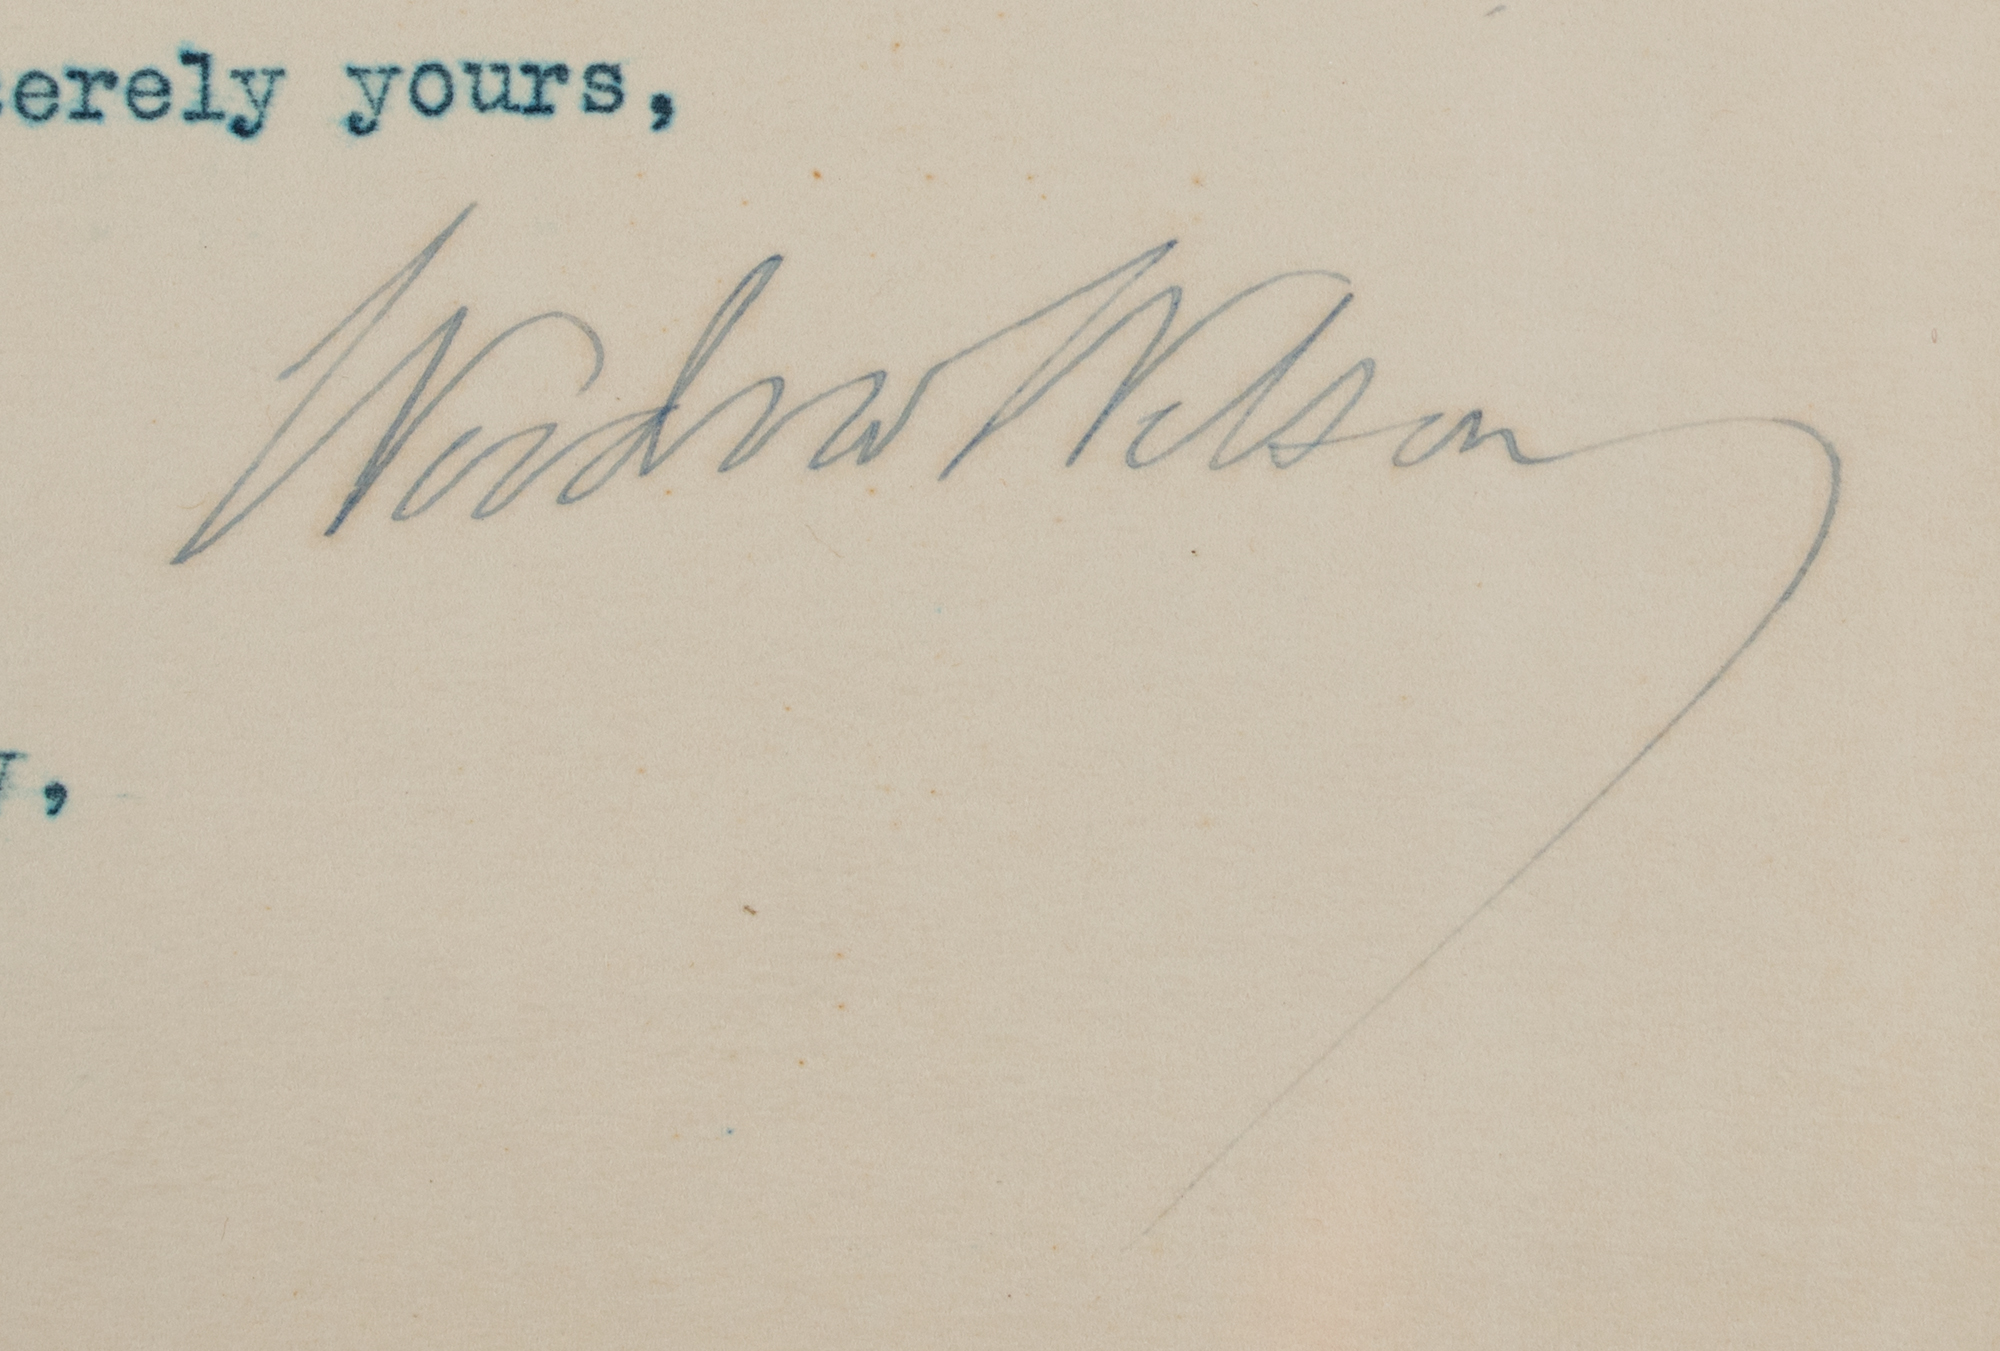 cerely yours,
Woodrow Wilson
y,